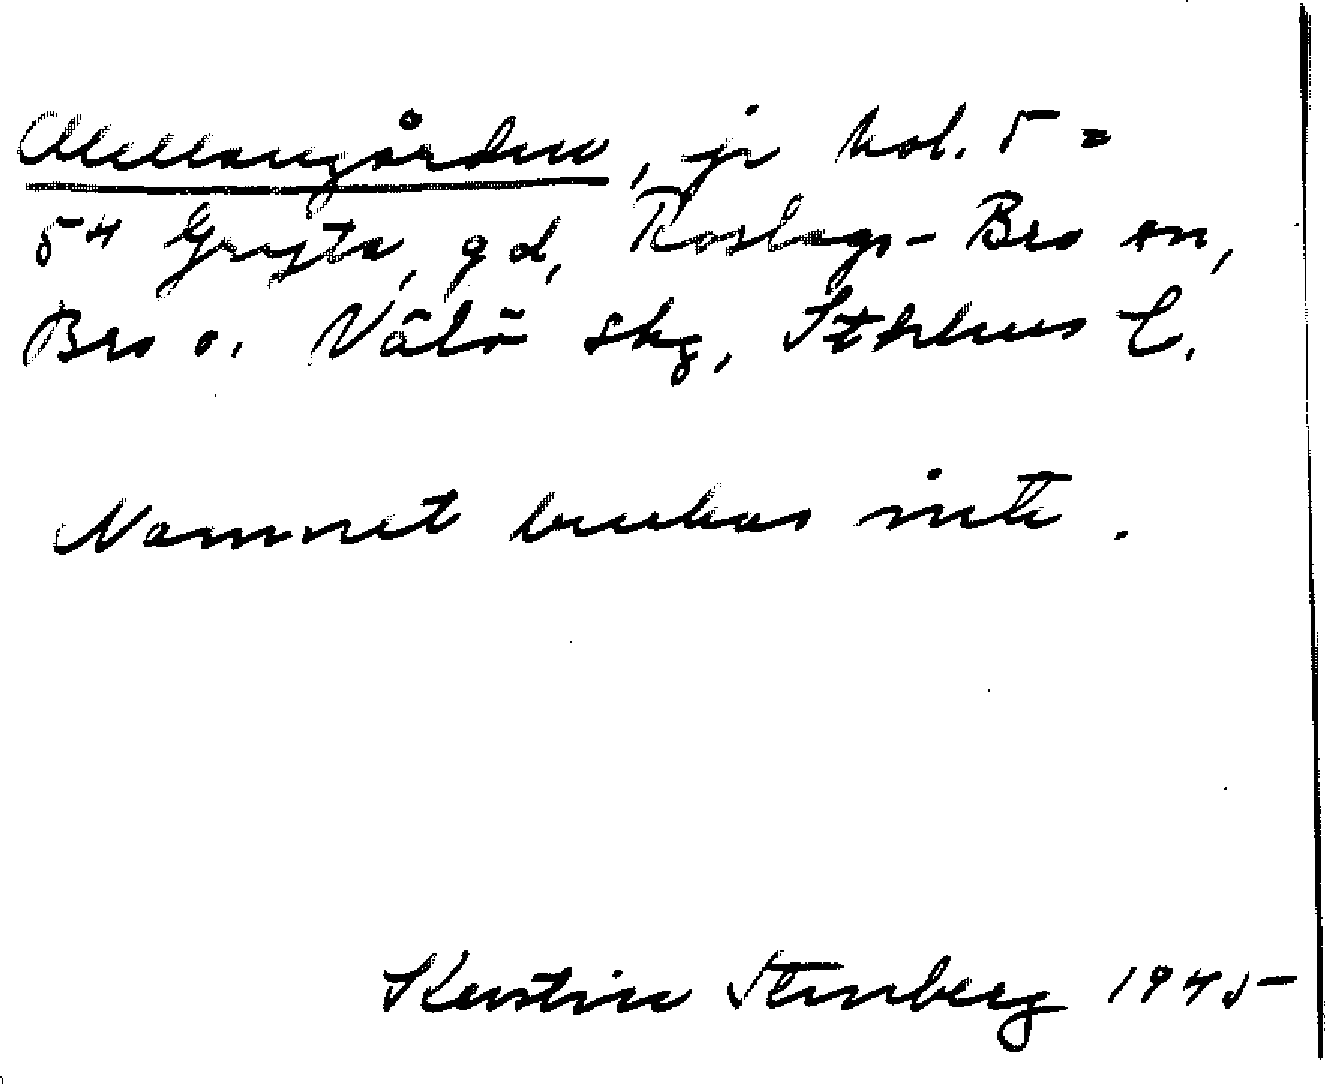 Mellangården, jr kol. 5 =
54 Grysta, gd, Roslags-Bro sn,
Bro o. Vätö skg, Sthlms l.
Namnet brukas inte.
Kerstin Stenberg 1945